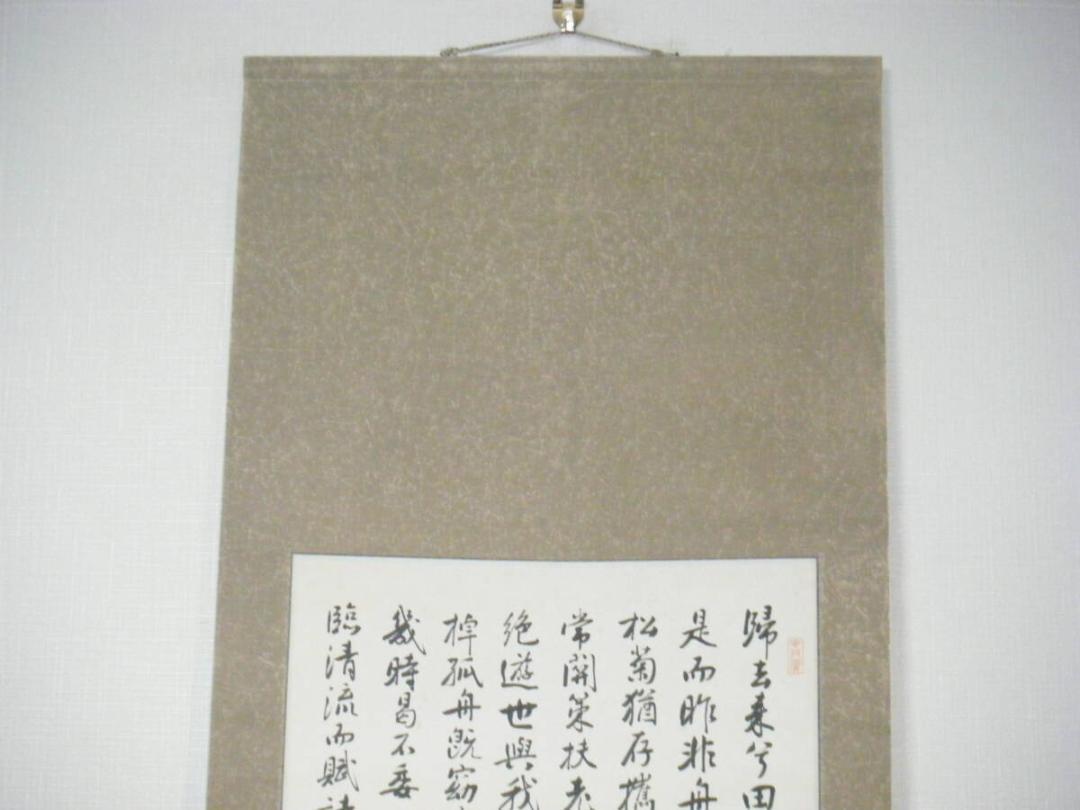 歸去来兮田
是而昨非舟
松菊猶存攜
常關策扶老
絶遊也與我
棹孤舟既窈
幾時曷不委
臨清流而賦詩